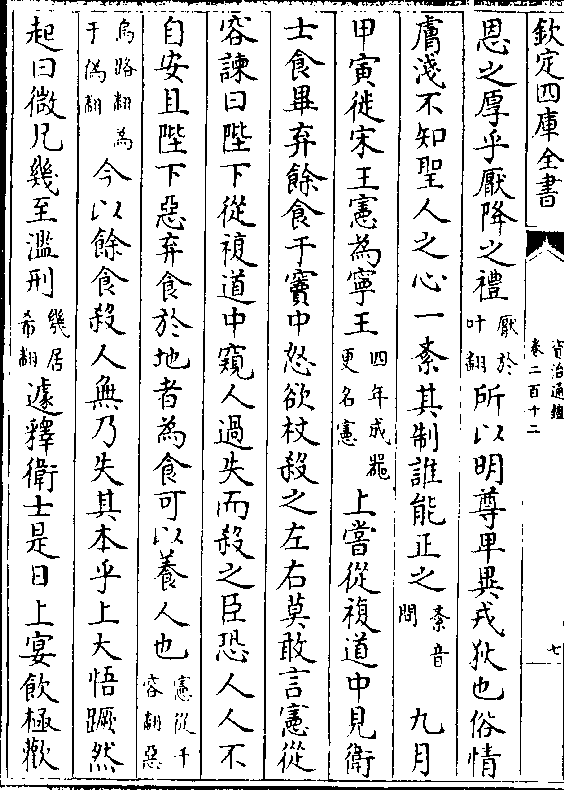 欽定四庫全書
資治通鑑
卷二百十二
七
恩之厚乎厭降之禮厭於叶翻所以明尊卑異戎狄也俗情
膚淺不知聖人之心一紊其制誰能正之紊音問九月
甲寅徙宋王憲為寧王四年成器更名憲上嘗從複道中見衛
士食畢弃餘食于竇中怒欲杖殺之左右莫敢言憲從
容諫曰陛下從複道中窺人過失而殺之臣恐人人不
自安且陛下惡弃食於地者為食可以養人也憲從千容翻惡
烏路翻為于偽翻今以餘食殺人無乃失其本乎上大悟蹶然
起曰微兄幾至濫刑幾居希翻遽釋衛士是日上宴飲極歡